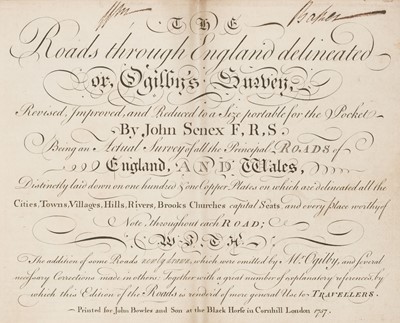 THE
Roads through England delineated
or, Ogilby's Survey,
Revised, Improved, and Reduced to a Size portable for the Pocket
By John Senex F.R.S.
Being an Actual Survey of all the Principal ROADS of
England, AND Wales,
Distinctly laid down on one hundred & one Copper Plates on which are delineated all the
Cities, Towns, Villages, Hills, Rivers, Brooks Churches capital Seats, and every Place worthy of
Note throughout each ROAD;
WITH
The addition of some Roads newly drawn, which were omitted by Mr. Ogilby, and several
necessary Corrections made in others; Together with a great number of explanatory references, by
which this Edition of the Roads is render'd of more general Use to TRAVELLERS.
Printed for John Bowles and Son at the Black Horse in Cornhill London 1757.